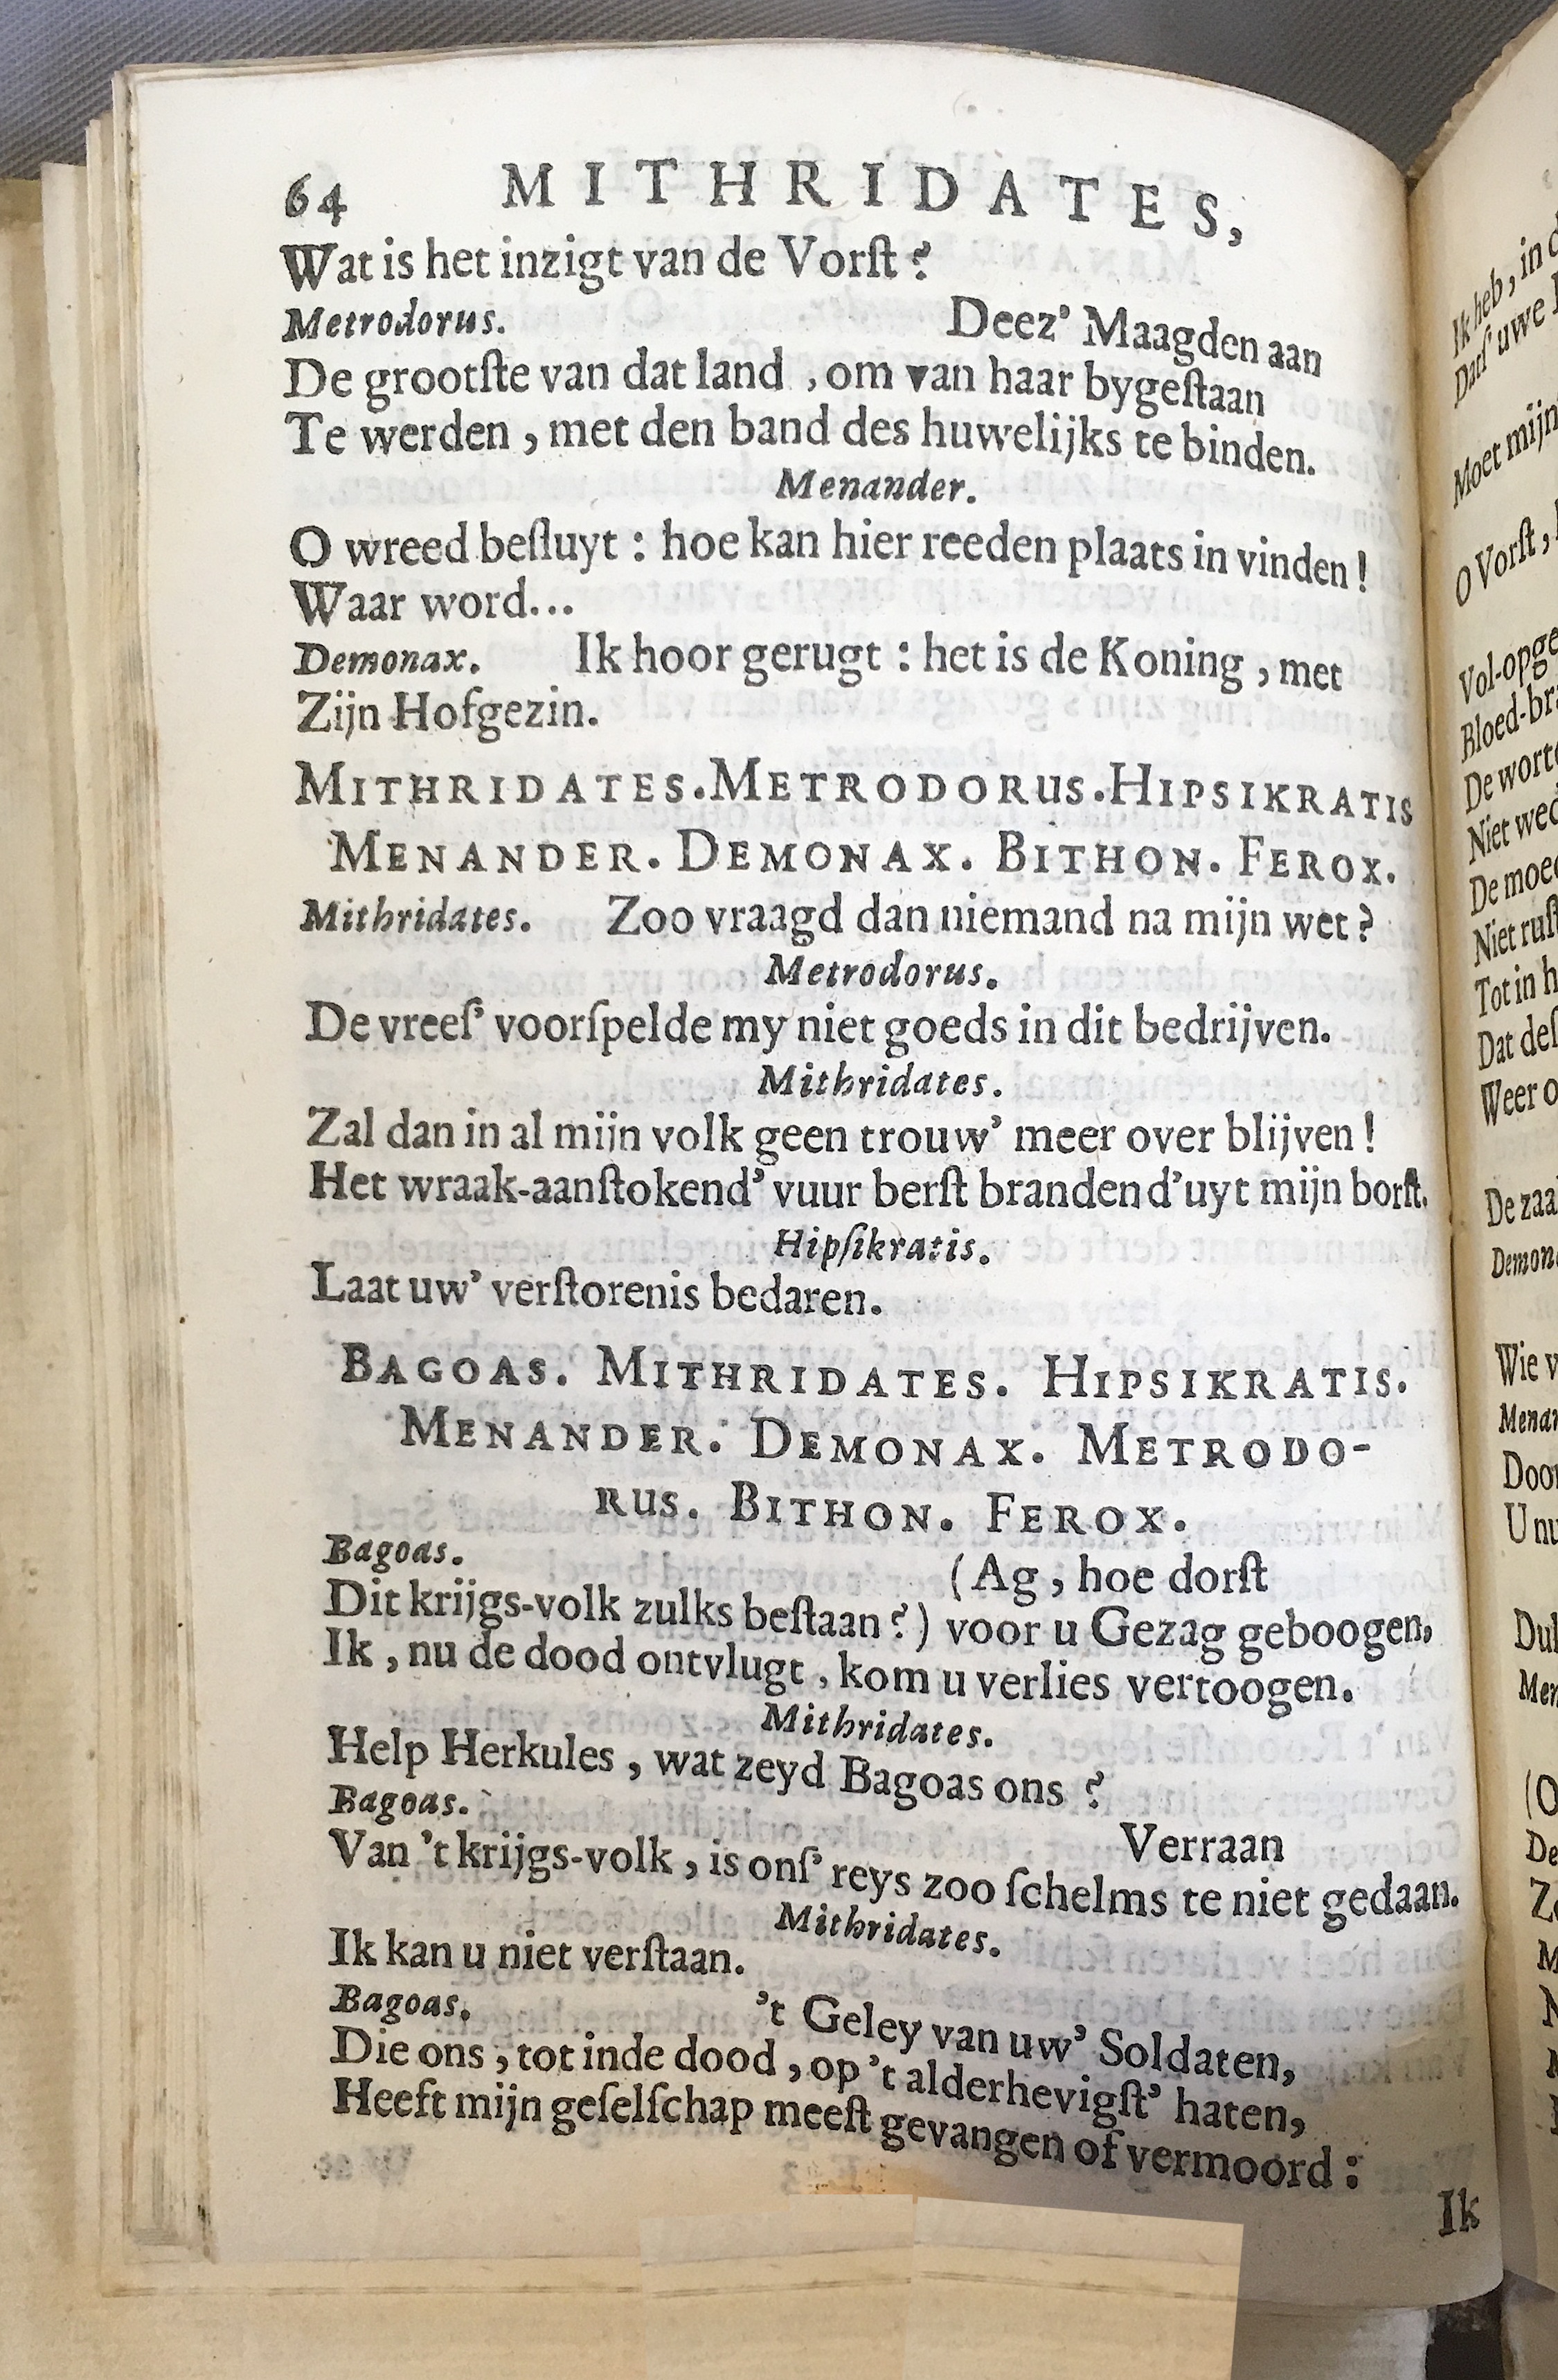 64 MITHRIDATES,
Wat is het inzigt van de Vorſt?
Metrodorus. Deez' Maagden aan
De grootſte van dat land, om van haar bygeſtaan
Te werden, met den band des huwelijks te binden.
Menander.
O wreed beſluyt: hoe kan hier reeden plaats in vinden!
Waar word...
Demonax. Ik hoor gerugt: het is de Koning, met
Zijn Hofgezin.
MITHRIDATES. METRODORUS. HIPSIKRATIS
MENANDER. DEMONAX. BITHON. FEROX.
Mithridates. Zoo vraagd dan niemand na mijn wet?
Metrodorus.
De vreeſ' voorſpelde my niet goeds in dit bedrijven.
Mithridates.
Zal dan in al mijn volk geen trouw' meer over blijven!
Het wraak-aanſtokend' vuur berſt brandend' uyt mijn borſt.
Hipſikratis.
Laat uw' verſtorenis bedaren.
BAGOAS. MITHRIDATES. HIPSIKRATIS.
MENANDER. DEMONAX. METRODO-
RUS. BITHON. FEROX.
Bagoas. (Ag, hoe dorſt
Dit krijgs-volk zulks beſtaan?) voor u Gezag geboogen,
Ik, nu de dood ontvlugt, kom u verlies vertoogen.
Mithridates.
Help Herkules, wat zeyd Bagoas ons?
Bagoas. Verraan
Van 't krijgs-volk, is onſ' reys zoo ſchelms te niet gedaan.
Mithridates.
Ik kan u niet verſtaan.
Bagoas. 't Geley van uw' Soldaten,
Die ons, tot inde dood, op 't alderhevigſt' haten,
Heeft mijn geſelſchap meeſt gevangen of vermoord:
Ik
Ik heb, in
uwe
Moet mijn
O Vorſt,
Vol-opge
Bloed-bra
De worte
Niet wed
De moed
Niet ruſt
Tot in h
Dat deſ
Weer o
De zaa
Demona
Wie v
Menan
Door
U nu
Dul
Men
(O
De